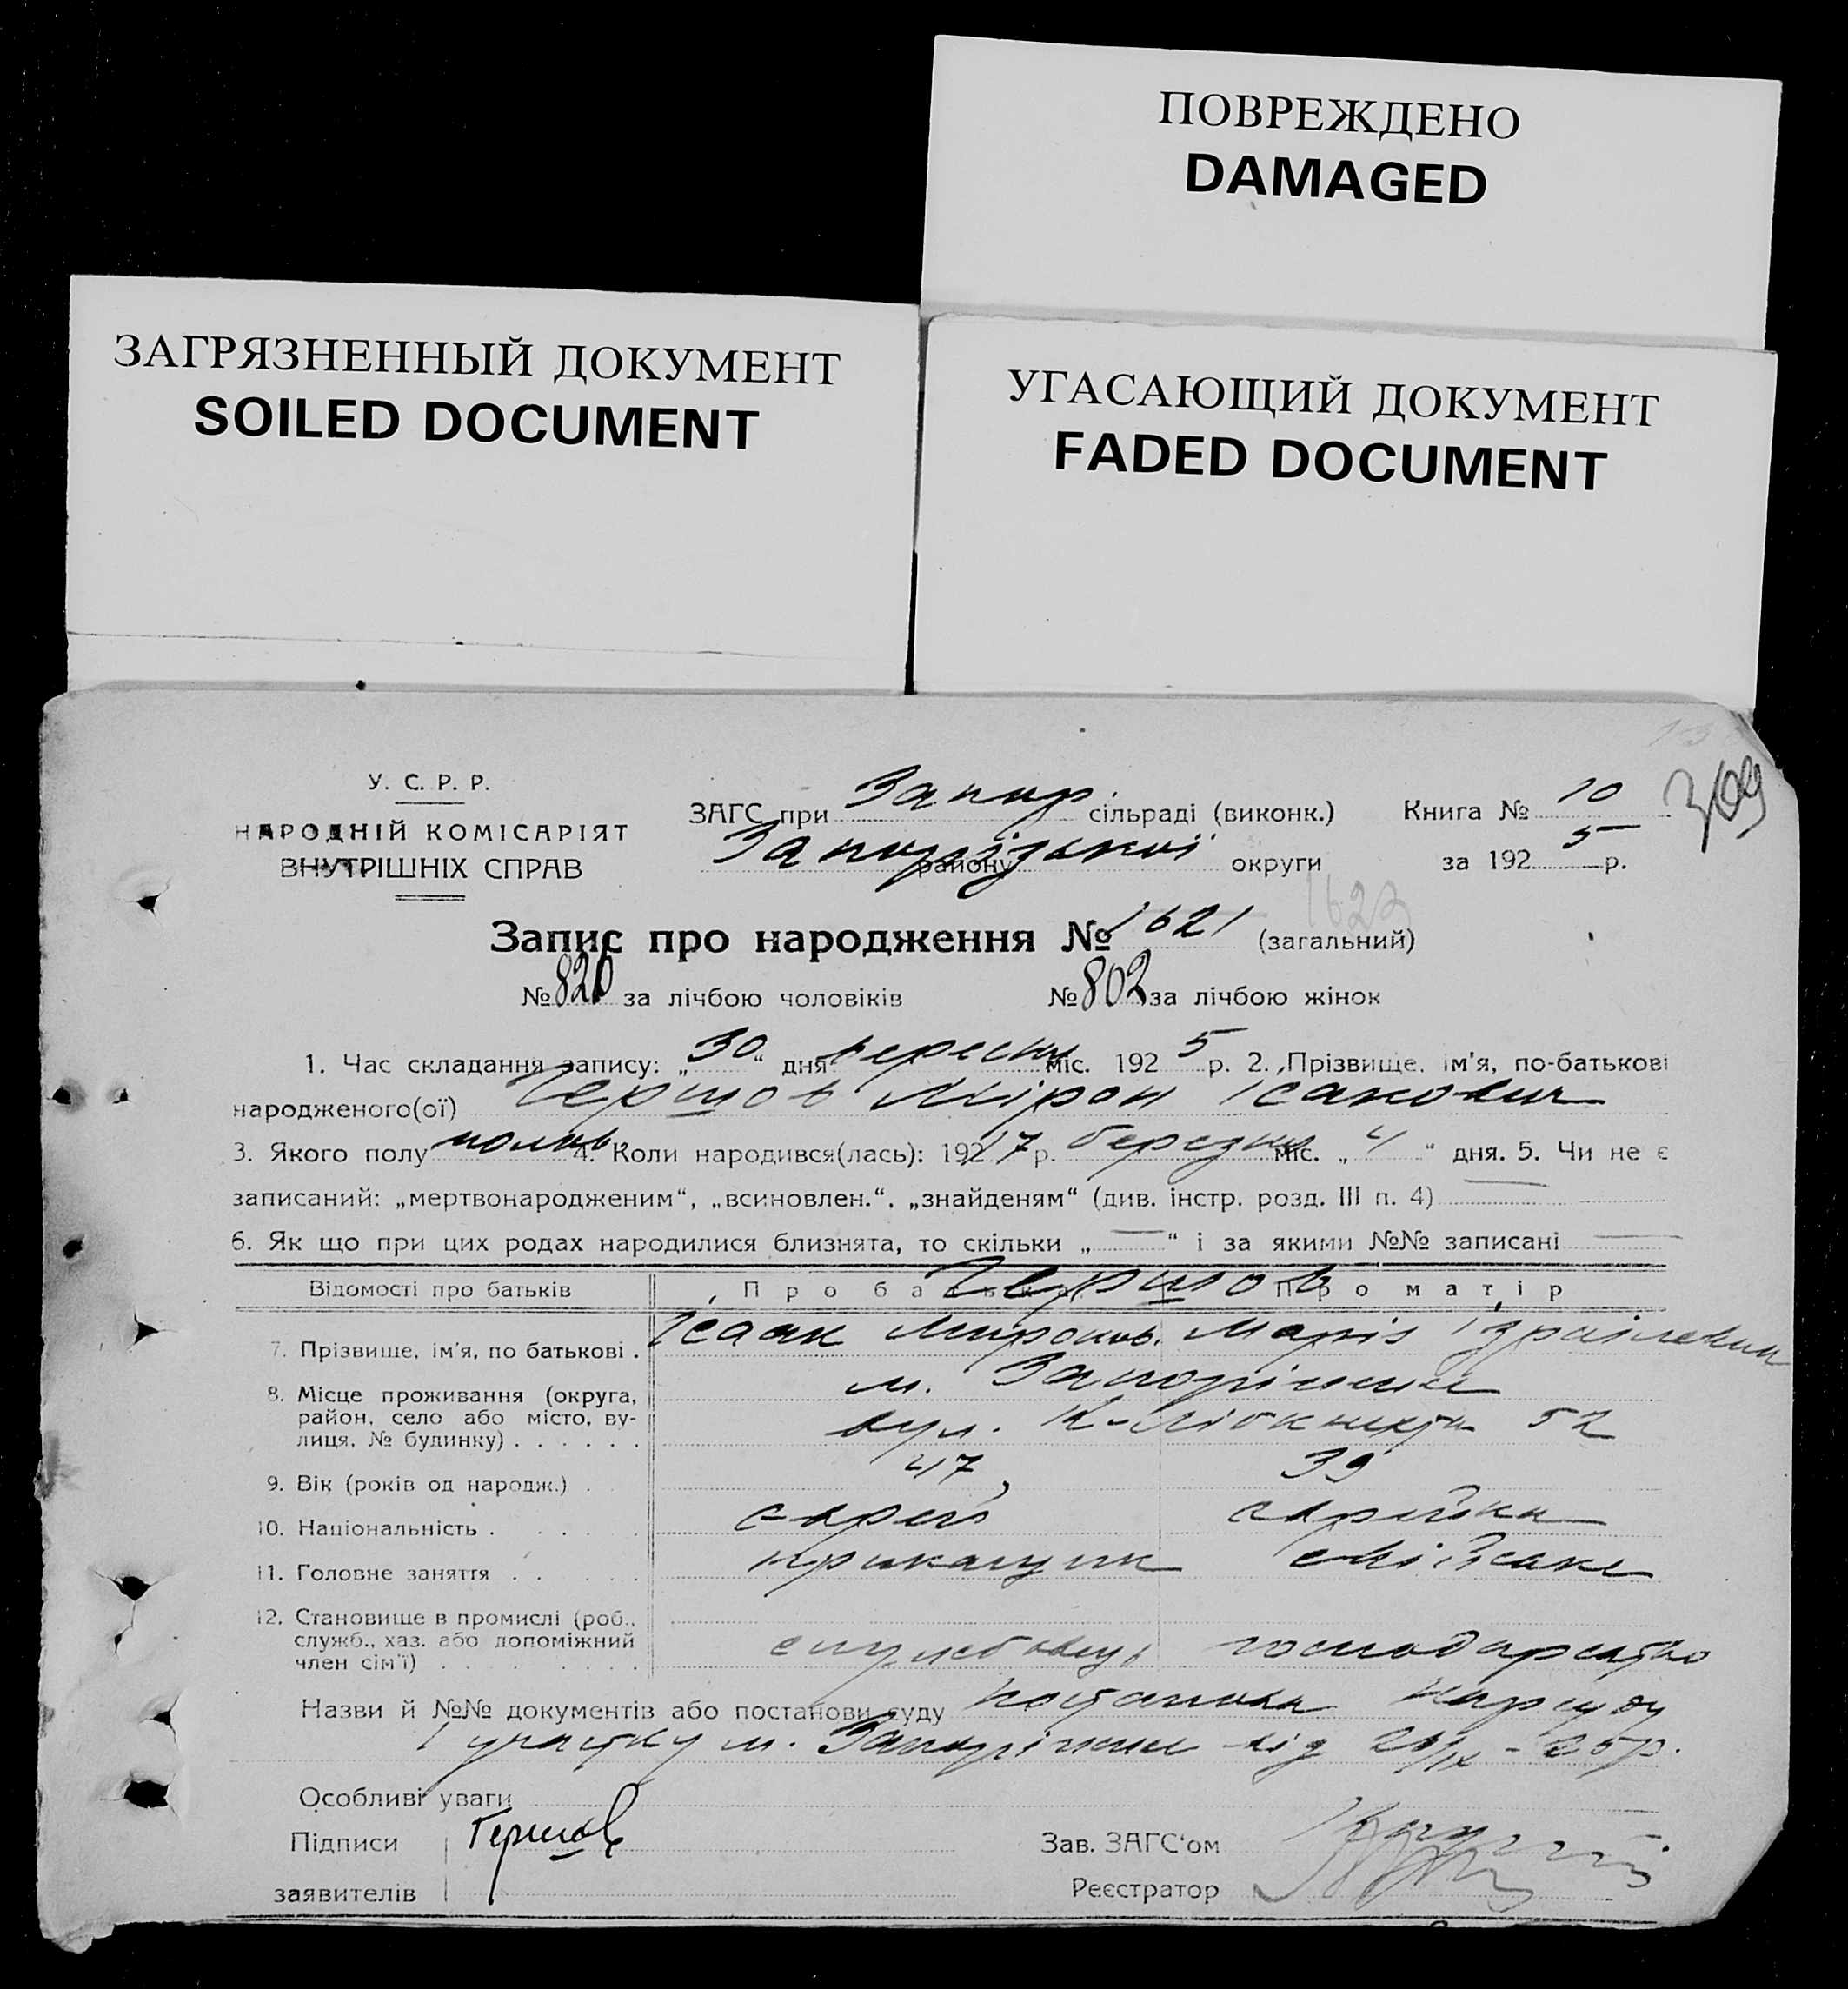 ПОВРЕЖДЕНО
DAMAGED
ЗАГРЯЗНЕННЫЙ ДОКУМЕНТ
SOILED DOCUMENT
УГАСАЮЩИЙ ДОКУМЕНТ
FADED DOCUMENT
309
У. С. Р. Р.
НАРОДНІЙ КОМІСАРІЯТ
ВНУТРІШНІХ СПРАВ
ЗАГС при Запор. сільраді (виконк.) Книга № 10
Запорізької району округи за 1925 р.
1622
Запис про народження № 1621 (загальний)
№ 820 за лічбою чоловіків № 802 за лічбою жінок
1. Час складання запису: „30“ дня вересня міс. 1925 р. 2. Прізвище, ім'я, по-батькові
народженого(ої) Гершов Мірон Ісакович
3. Якого полу чолов. 4. Коли народився(лась): 1917 р. березня міс. „4“ дня. 5. Чи не є
записаний: „мертвонародженим“, „всиновлен.“, „знайденям“ (див. інстр. розд. III п. 4) —
6. Як що при цих родах народилися близнята, то скільки „—“ і за якими №№ записані —
Відомості про батьків Про батька Про матір
Гершов
7. Прізвище, ім'я, по батькові . Ісаак Миронов. Марія Ізраілевна
8. Місце проживання (округа, район, село або місто, вулиця, № будинку) . . . . . . м. Запоріжжє
вул. К-Лібкнехта 52
9. Вік (років од народж.) . 47 39
10. Національність . . . . . еврей еврейка
11. Головне заняття . . . . . прикащик хатнє
12. Становище в промислі (роб., служб., хаз. або допоміжний член сім'ї) . . . . . . службовець господарство
Назви й №№ документів або постанови суду постанова Нарсуду
1 участку м. Запоріжжє від 26/IX - 25 р.
Особливі уваги
Підписи Гершов Зав. ЗАГС'ом
заявителів Реєстратор